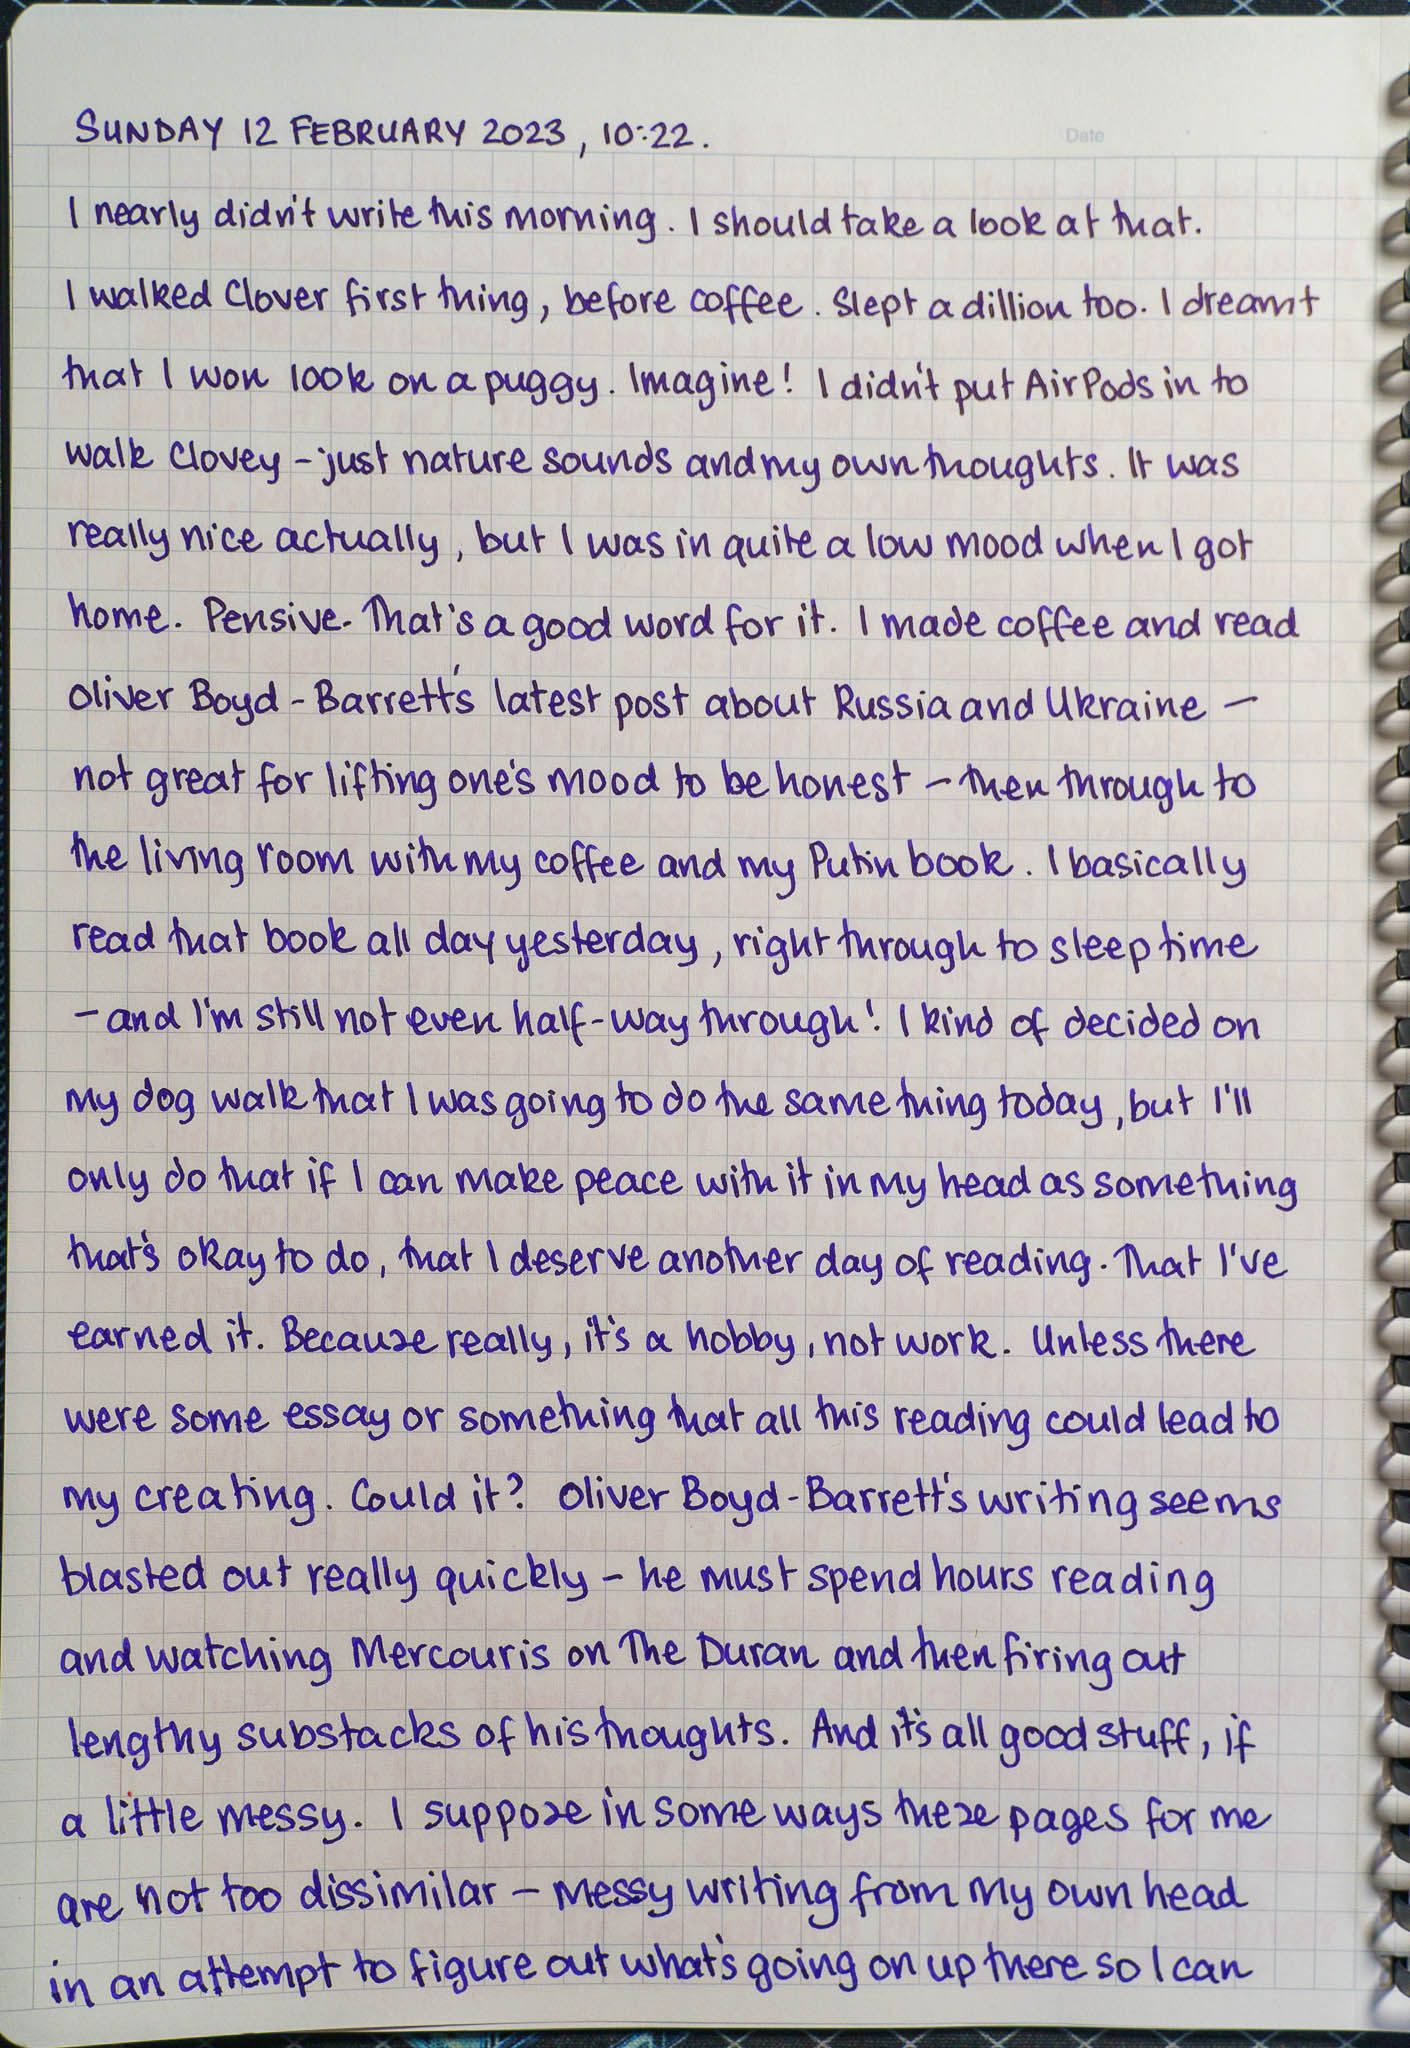 Date
SUNDAY 12 FEBRUARY 2023, 10:22.
I nearly didn't write this morning. I should take a look at that.
I walked Clover first thing, before coffee. Slept a dillion too. I dreamt
that I won 100k on a puggy. Imagine! I didn't put AirPods in to
walk Clovey – just nature sounds and my own thoughts. It was
really nice actually, but I was in quite a low mood when I got
home. Pensive. That's a good word for it. I made coffee and read
Oliver Boyd-Barrett's latest post about Russia and Ukraine –
not great for lifting one's mood to be honest – then through to
the living room with my coffee and my Putin book. I basically
read that book all day yesterday, right through to sleep time
– and I'm still not even half-way through! I kind of decided on
my dog walk that I was going to do the same thing today, but I'll
only do that if I can make peace with it in my head as something
that's okay to do, that I deserve another day of reading. That I've
earned it. Because really, it's a hobby, not work. Unless there
were some essay or something that all this reading could lead to
my creating. Could it? Oliver Boyd-Barrett's writing seems
blasted out really quickly – he must spend hours reading
and watching Mercouris on The Duran and then firing out
lengthy substacks of his thoughts. And it's all good stuff, if
a little messy. I suppose in some ways these pages for me
are not too dissimilar – messy writing from my own head
in an attempt to figure out what's going on up there so I can